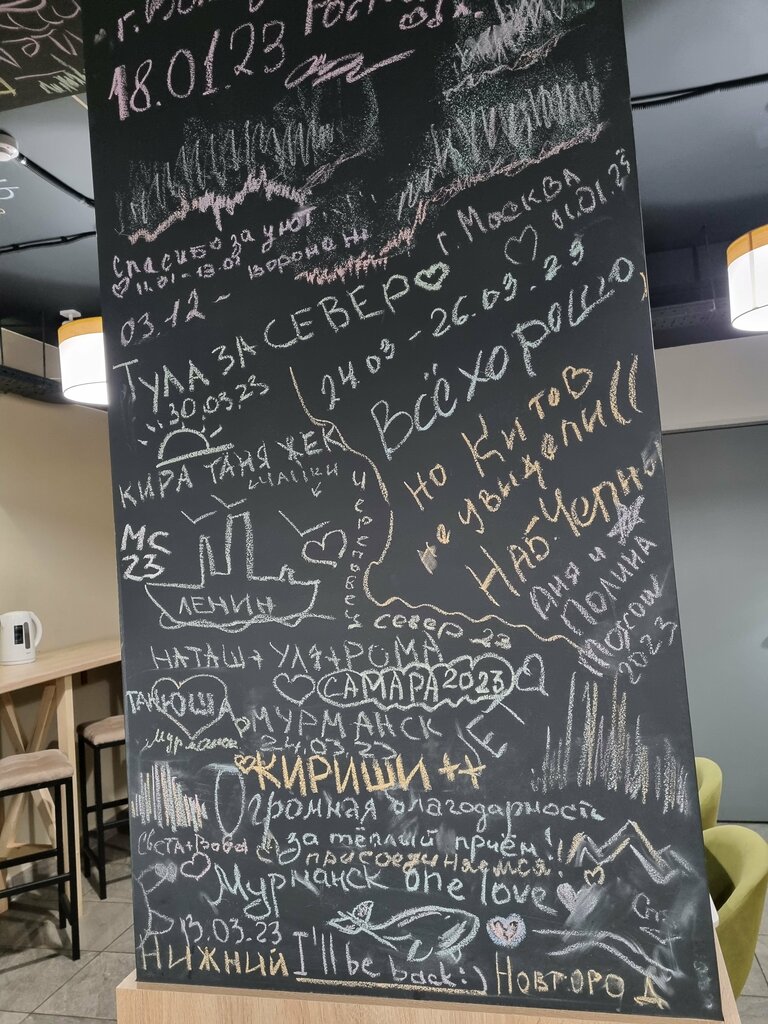 18.01.23
Спасибо за уют
11.01 - 13.01 Воронеж
г. Москва
03.12 -
11.01.23
ТУЛА ЗА СЕВЕР
30.03.23
24.03 - 26.03.23
ВСЁ ХОРОШО
НО КИТОВ
не увидели((
НАБ. ЧЕЛНЫ
КИРА ТАНЯ ЖЕК
МС
23
ЛЕНИН
Череповец
север 23
Аня и
Полина
2023
НАТАШ+УЛЯ+РОМА
САМАРА 2023
ТАНЮША
МУРМАНСК
24.03.23
КИРИШИ ++
Огромная благодарность
за тёплый приём!!
присоединяемся!
Мурманск one love
13.03.23
НИЖНИЙ НОВГОРОД
I'll be back:)